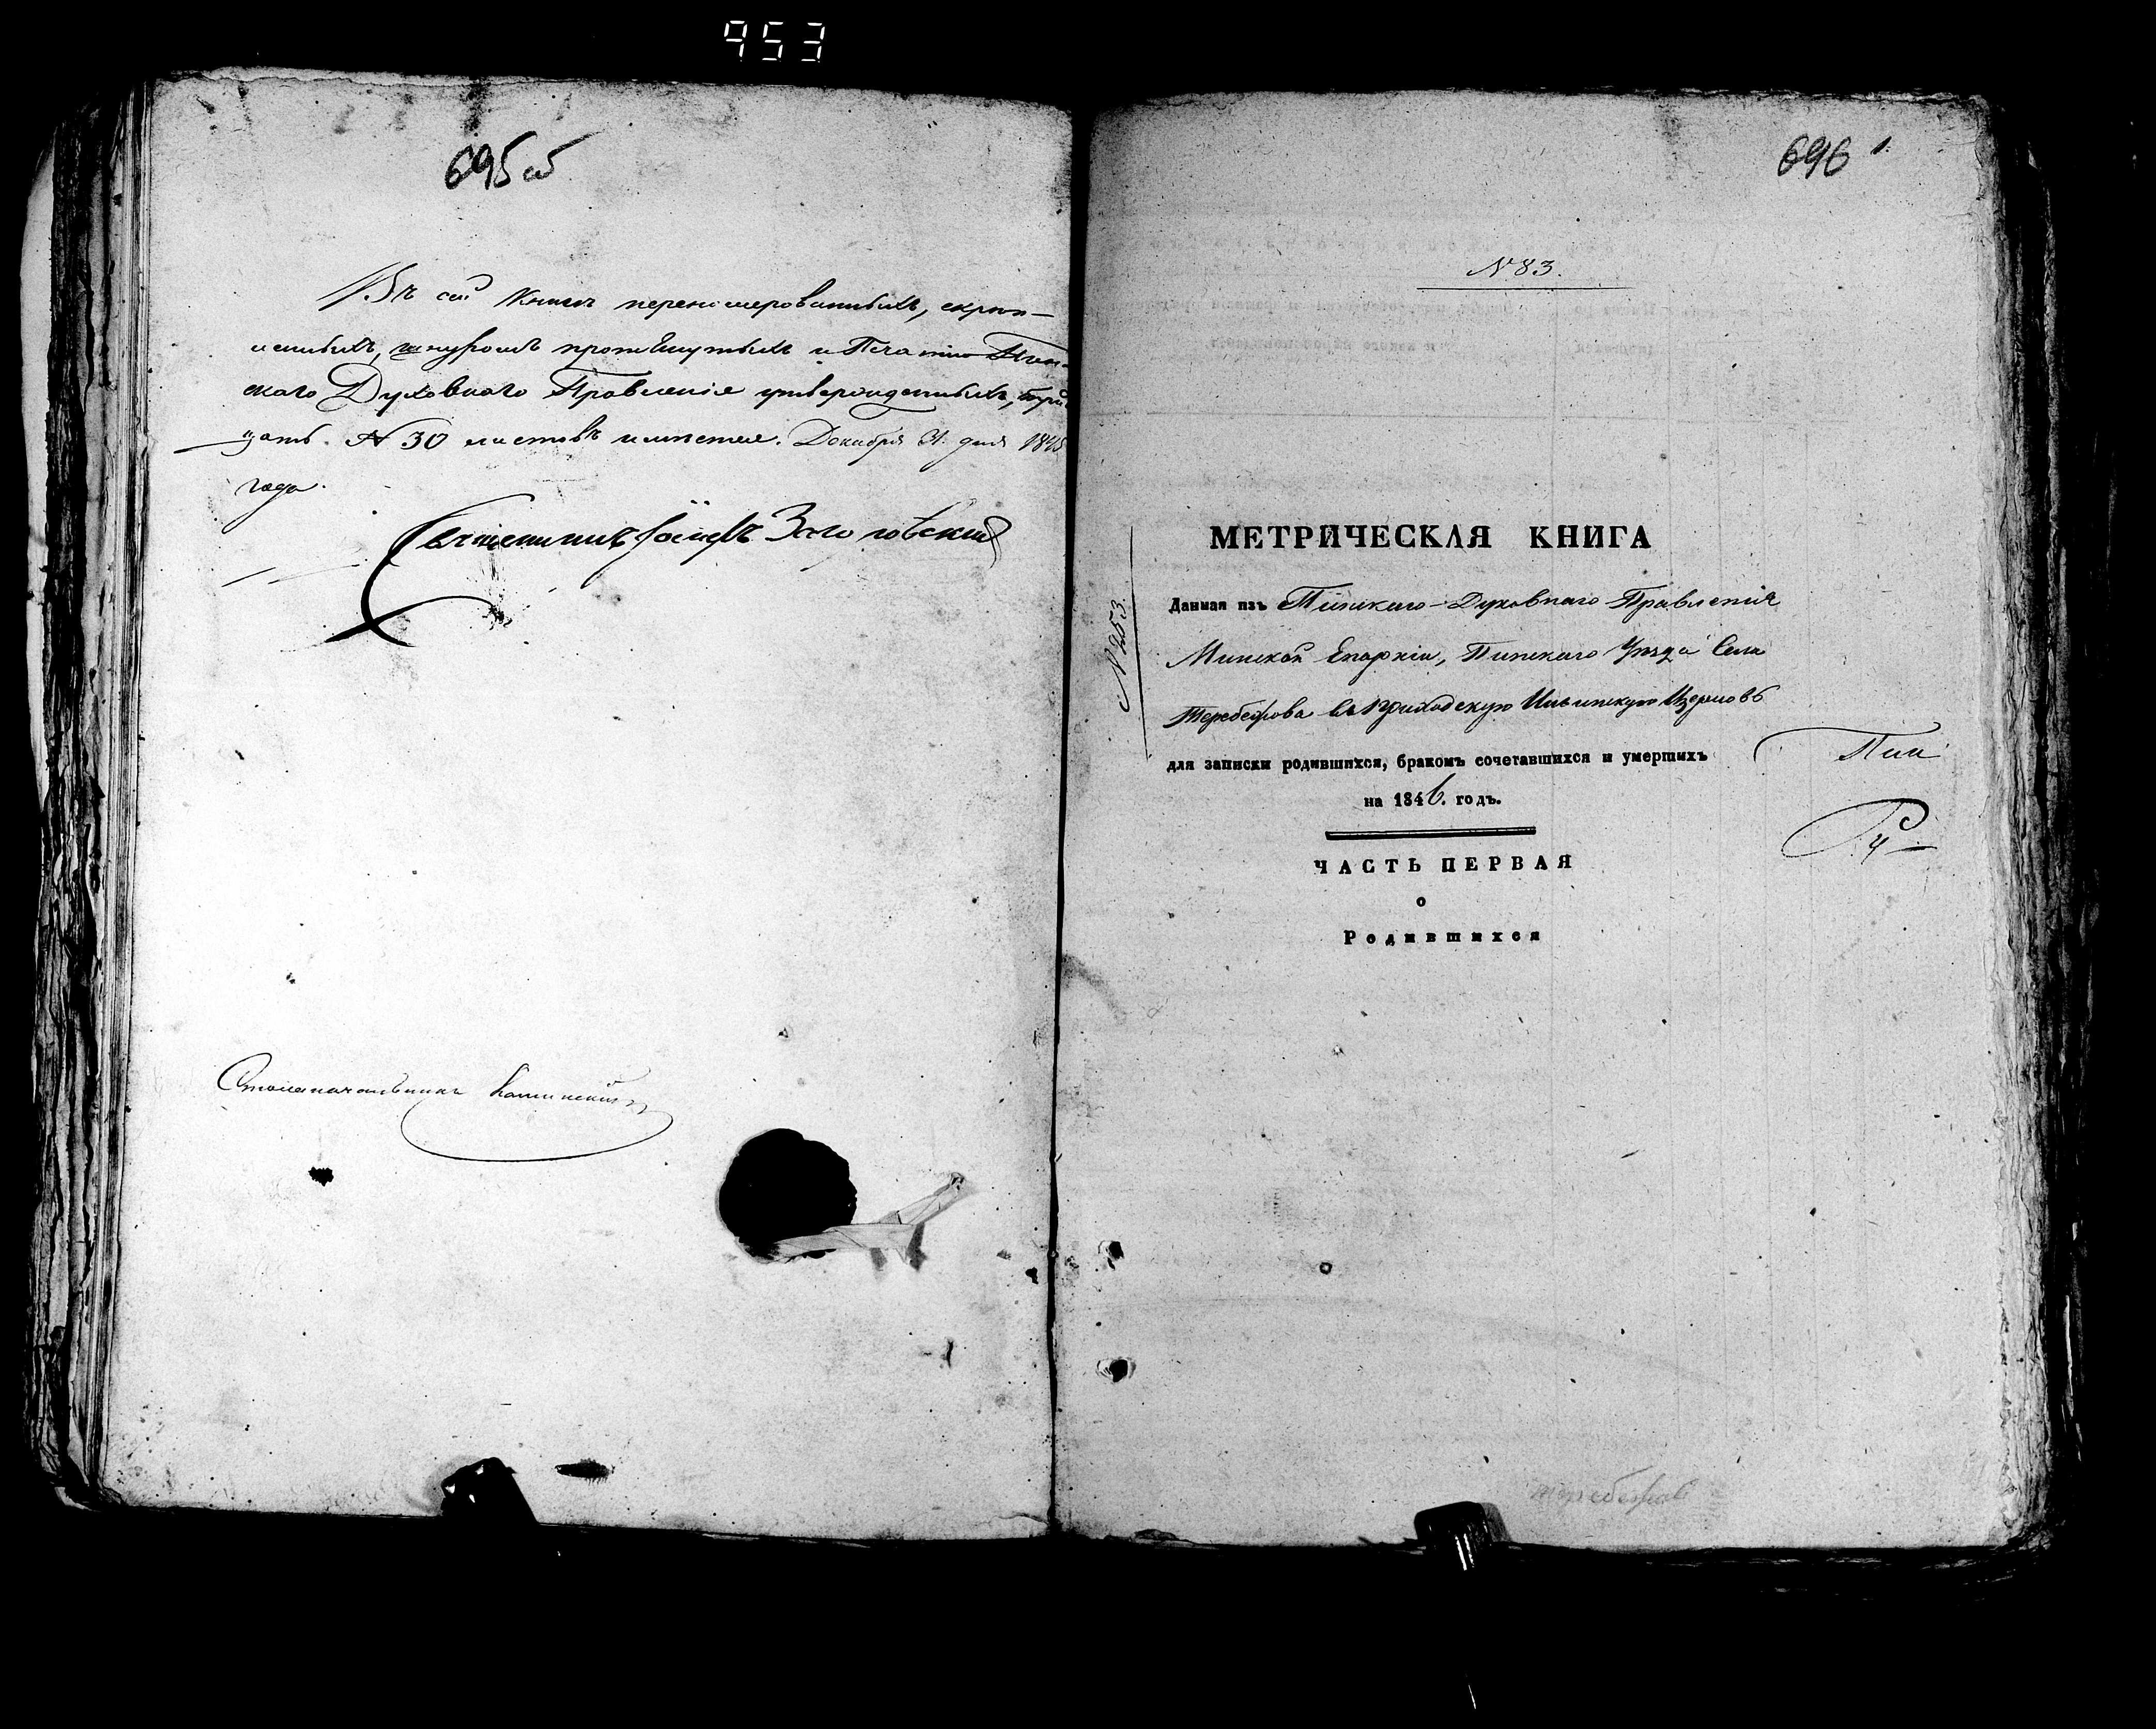 953
695 об
Въ сей Книгѣ перенумерованныхъ, скрѣп-
ленныхъ, шнуромъ протянутыхъ и Печатью Пин-
скаго Духовнаго Правленія утвержденныхъ, трид
цать № 30 листовъ имѣется. Декабря 31 дня 1845
года.
Священникъ
Столоначальникъ
696 1
№ 83.
МЕТРИЧЕСКАЯ КНИГА
Данная изъ Пинскаго Духовнаго Правленія
Минской Епархіи, Пинскаго Уѣзда Села
Теребежова въ приходскую Церковь
для записки родившихся, бракомъ сочетавшихся и умершихъ
на 1846. годъ.
ЧАСТЬ ПЕРВАЯ
о
Родившихся
№ 253.
Пин
теребежов